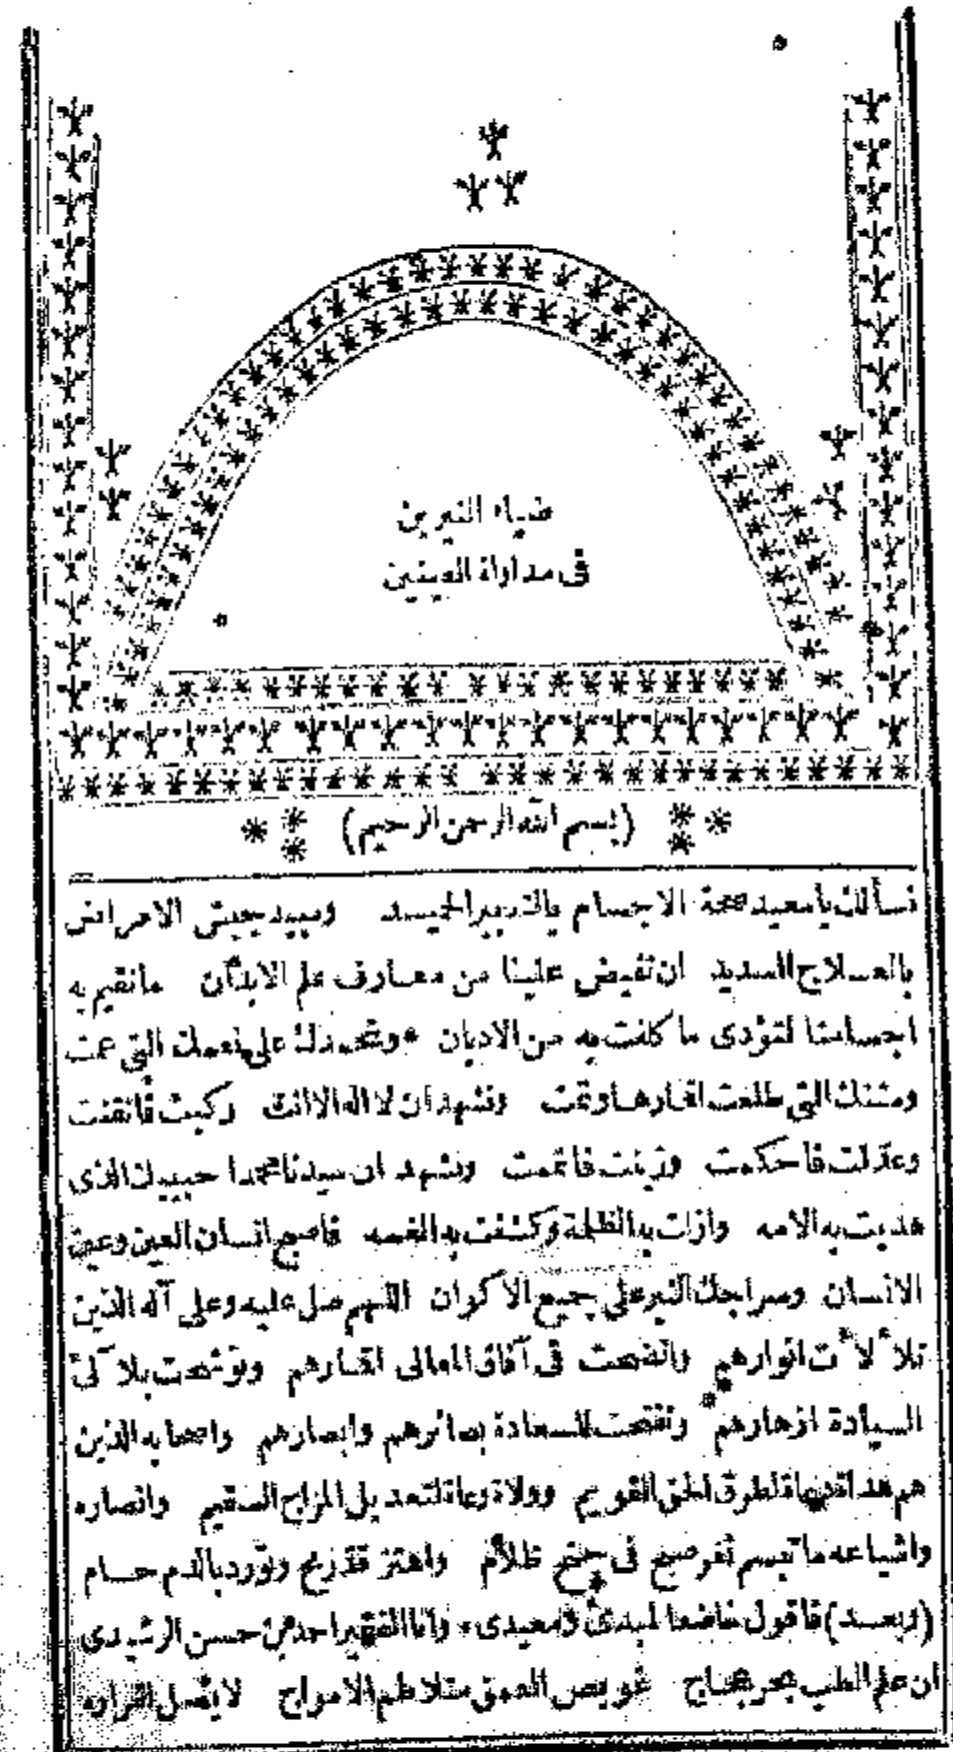 ضياء النيرين
فى مداواة العينين
(بسم الله الرحمن الرحيم)
نسألك يا معيد صحة الاجسام بالتدبير الحميد ومبيد جيش الامراض
بالعلاج السديد ان تفيض علينا من معارف علم الابدان مانقيم به
اجسامنا لتؤدى ما كلفت به من الاديان * ونحمدك على نعمك التى عمت
ومننك التى طلعت اقمارها وتمت ونشهد ان لا اله الا انت ركبت فاتقنت
وعدلت فاحكمت وزينت فاتممت ونشهد ان سيدنا محمدا حبيبك الذى
هديت به الامه وازلت به الظلمة وكشفت به الغمه فاصبح انسان العين وعين
الانسان وسراجك النير على جميع الاكوان اللهم صل عليه وعلى آله الذين
تلألأت انوارهم واتضحت فى آفاق المعالى اقمارهم وتوشحت بلآلئ
السيادة ازهارهم وتفتحت للسعادة بصائرهم وابصارهم واصحابه الذين
هم هداة لطرق الحق القويم وولاة رعاة لتعديل المزاج السقيم وانصاره
واشياعه ما تبسم ثغر صبح فى جنح ظلام واهتز قد رمح وتورد بالدم حسام
(وبعد) فاقول خاضعا لمبدئ ومعيدى * وانا الفقير احمد بن حسن الرشيدى
ان علم الطب بحر عجاج غويص العمق متلاطم الامواج لا يصل لقراره